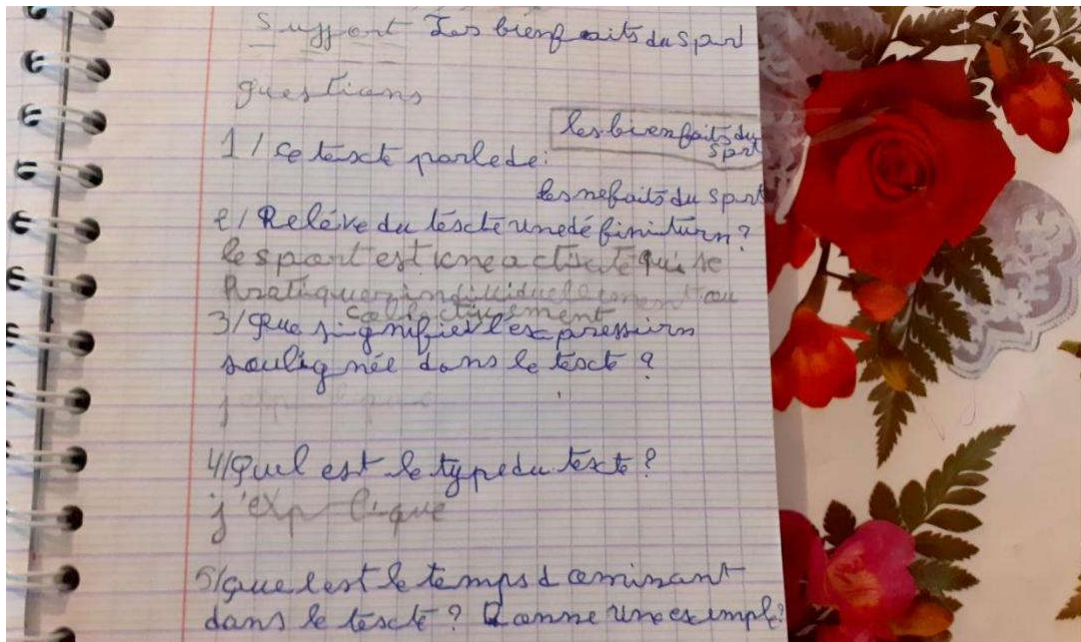 Support Les bienfaits du sport
questions
1/ Ce texte parle de:
les bienfaits du
sport
les nefaits du sport
2/ Reléve du texte une définiturn?
le sport est une activité qui se
Pratiquer individuellement ou
collectivement
3/ Que signifier l'expressiurn
soulignée dans le texte ?
4/ Quel est le type du texte?
j'explique
5/ Quel est le temps dominant
dans le texte? Donne un exemple?